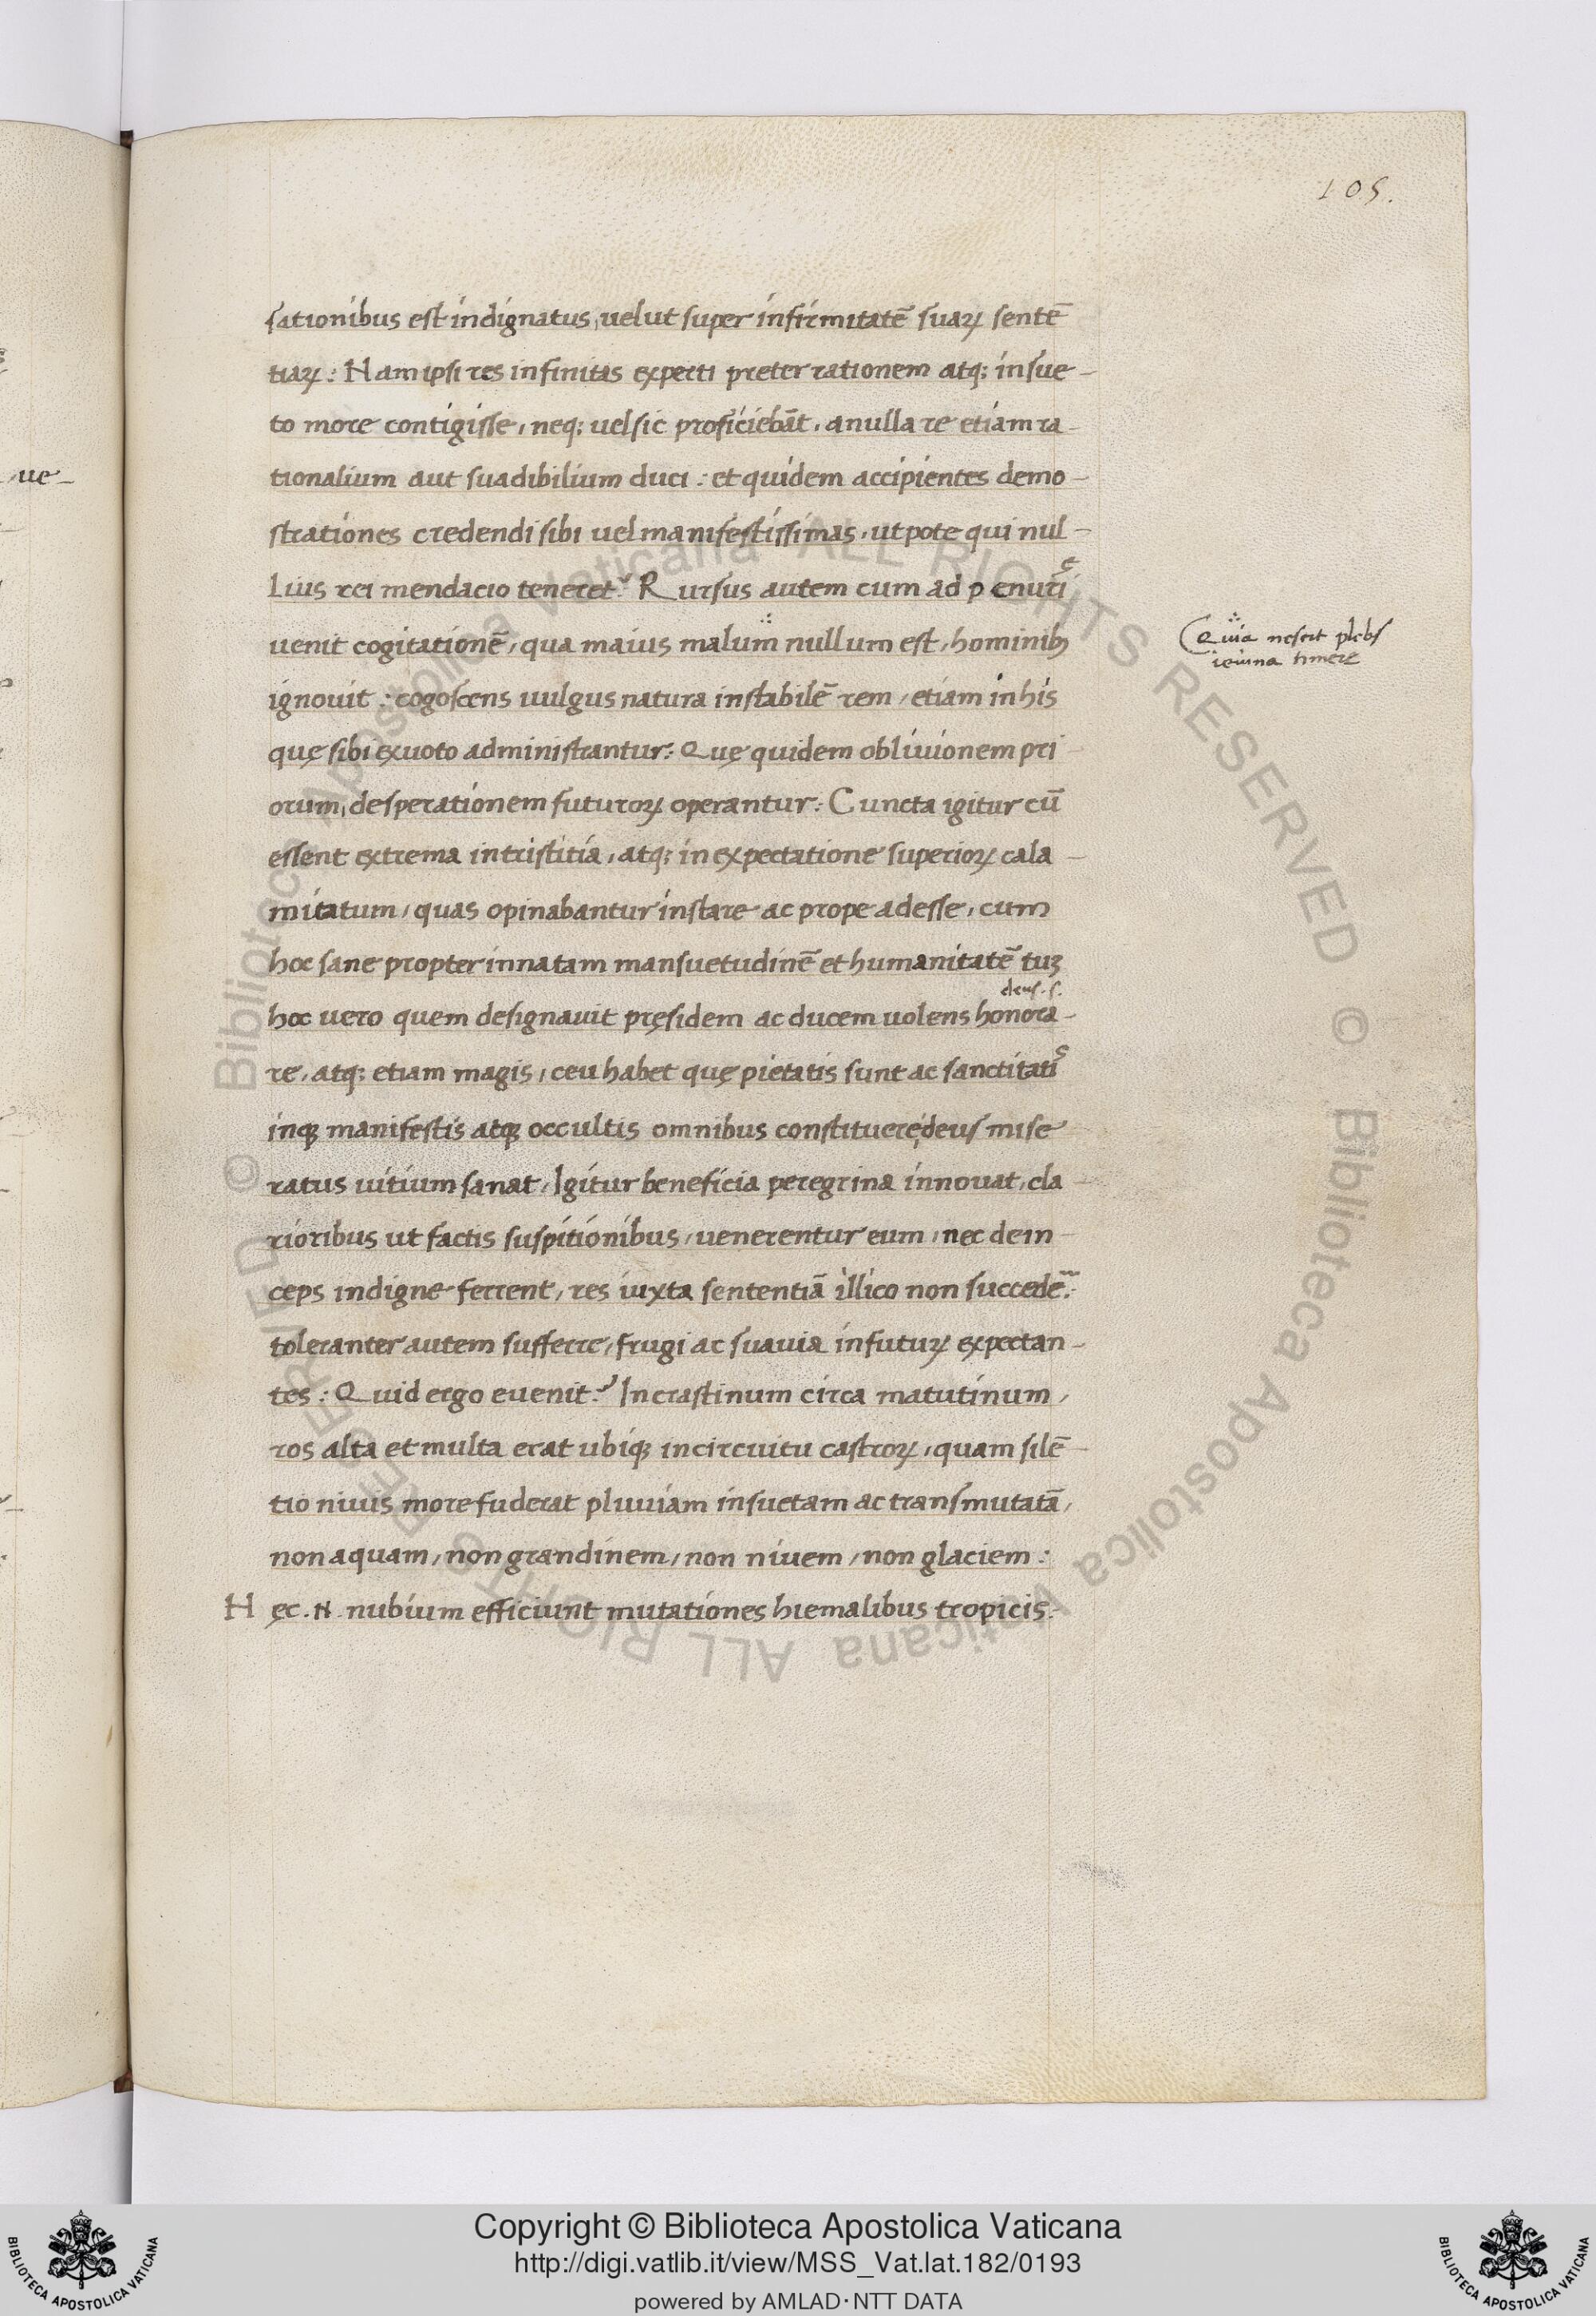 105.
sationibus est indignatus, uelut super infirmitatē suaꝝ sentē
tiaꝝ: Nam ipsi res infinitas experti preter rationem atq; insue-
to more contigisse, neq; uel sic proficiebāt, a nulla re etiam ra-
tionalium aut suadibilium duci: et quidem accipientes demo-
strationes credendi sibi uel manifestissimas, ut pote qui nul-
lius rei mendacio teneret? Rursus autem cum ad penurię
uenit cogitationē, qua maius malum nullum est, hominibꝫ
ignouit: cogoscens uulgus natura instabilē rem, etiam in his
quę sibi ex uoto administrantur: Quę quidem obliuionem pri-
orum, desperationem futuroꝝ operantur: Cuncta igitur cū
essent extrema in tristitia, atq; in expectatione superioꝝ cala-
mitatum, quas opinabantur instare ac prope adesse, cum
hoc sane propter innatam mansuetudinē et humanitatē tuꝫ
deus. s.
hoc uero quem designauit pręsidem ac ducem uolens honora-
re, atq; etiam magis, ceu habet quę pietatis sunt ac sanctitatis
inqꝫ manifestis atqꝫ occultis omnibus constituere, deus mise
ratus uitium sanat, Igitur beneficia peregrina innouat, cla-
rioribus ut factis suspitionibus, uenerentur eum, nec dein-
ceps indigne ferrent, res iuxta sententiā illico non succedē:
toleranter autem sufferre, frugi ac suauia in futuꝝ expectan-
tes: Quid ergo euenit? In crastinum circa matutinum,
ros alta et multa erat ubiqꝫ in circuitu castroꝝ, quam silē-
tio niuis more fuderat pluuiam insuetam ac transmutatā,
non aquam, non grandinem, non niuem, non glaciem:
Hęc .N. nubium efficiunt mutationes hiemalibus tropicis:
Quia nescit plebs
ieiuna timere
ue-
Copyright © Biblioteca Apostolica Vaticana
http://digi.vatlib.it/view/MSS_Vat.lat.182/0193
powered by AMLAD·NTT DATA
BIBLIOTECA APOSTOLICA VATICANA
BIBLIOTECA APOSTOLICA VATICANA
© Biblioteca Apostolica Vaticana ALL RIGHTS RESERVED © Biblioteca Apostolica Vaticana ALL RIGHTS RESERVED